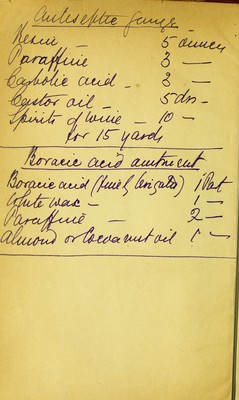 Antiseptic gauze
Resin – 5 ounces
Paraffine 3 —
Carbolic acid – 3 —
Castor oil – 5 drs –
Spirits of wine – 10 –
for 15 yards
Boracic acid ointment
Boracic acid (finely levigated) 1 Part
White wax – 1 —
Paraffine – 2 —
Almond or Cocoanut oil 1 —